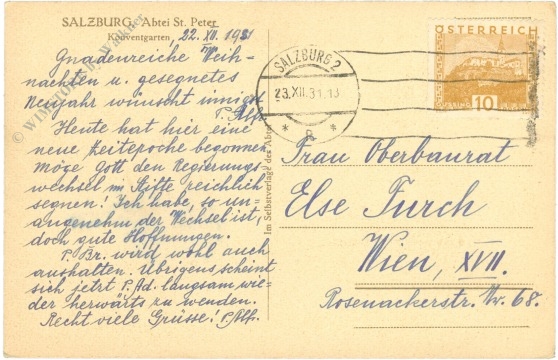 SALZBURG, Abtei St. Peter
Konventgarten, 22. XII. 1931
Gnadenreiche Weih-
nachten u. gesegnetes
Neujahr wünscht innigst
P. Alf.
Heute hat hier eine
neue Zeitepoche begonnen
Möge Gott den Regierungs-
wechsel im Stifte reichlich
segnen! Ich habe, so un-
angenehm der Wechsel ist,
doch gute Hoffnungen.
P. Br. wird wohl auch
aushalten. Übrigens scheint
sich jetzt P. Ad. langsam wie-
der herwärts zu wenden.
Recht viele Grüsse! P. Alf.
Im Selbstverlage des
SALZBURG 2
23.XII.31.13
* 8 *
ÖSTERREICH
GÜSSING 10
Frau Oberbaurat
Else Furch
Wien, XVII.
Rosenackerstr. Nr. 68.